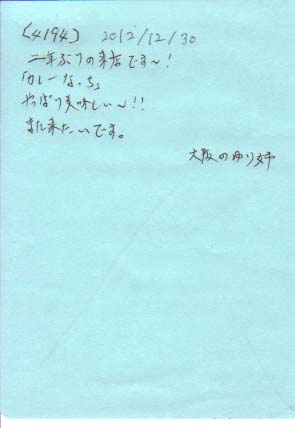 [4194] 2012/12/30
二年ぶりの来店です〜!
「カレーなっち」
やっぱり美味しい〜!!
また来たいです。
大阪のゆり姉